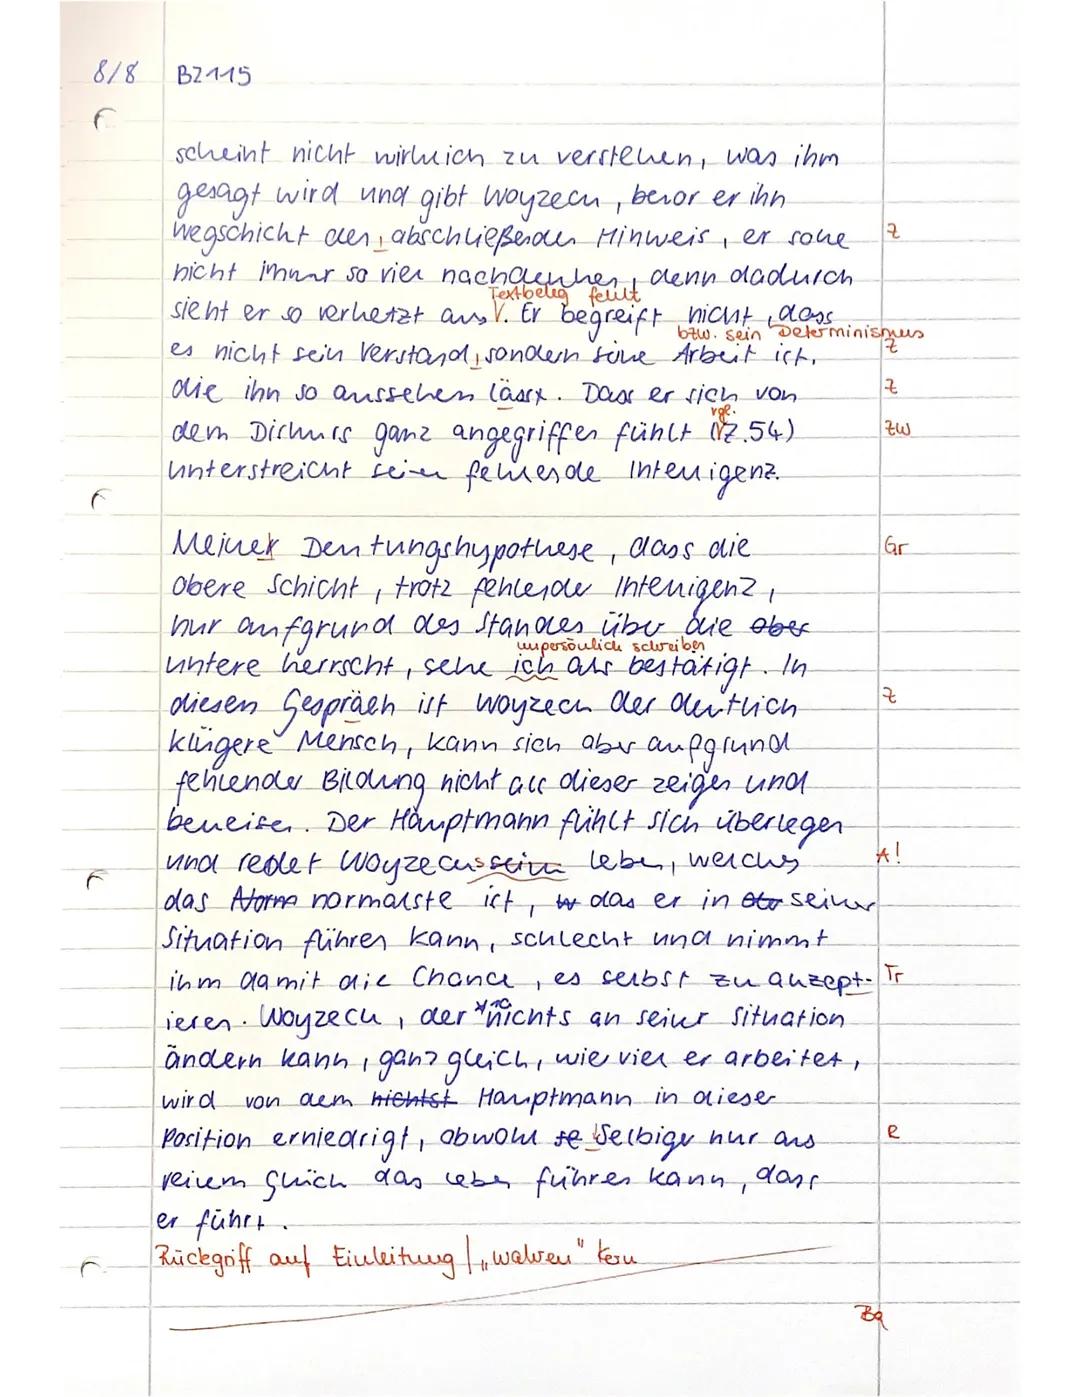 8/8 BZ115
scheint nicht wirklich zu verstehen, was ihm
gesagt wird und gibt Woyzeck, bevor er ihn
wegschickt den, abschließenden Hinweis, er solle Z
nicht immer so viel nachdenken, denn dadurch
Textbeleg fehlt
sieht er so verhetzt aus V. Er begreift nicht, dass
bzw. sein Determinismus
es nicht sein Verstand, sondern seine Arbeit ist, Z
die ihn so aussehen lässt. Dass er sich von Z
vgl.
dem Diskurs ganz angegriffen fühlt (Z.54) ZW
unterstreicht seine fehlende Intelligenz.
Meiner Deutungshypothese, dass die Gr
obere Schicht, trotz fehlender Intelligenz,
nur aufgrund des Standes über die ober
unpersönlich schreiben
untere herrscht, sehe ich als bestätigt. In
diesen Gespräch ist Woyzeck der deutlich Z
klügere Mensch, kann sich aber aufgrund
fehlender Bildung nicht als dieser zeigen und
beweisen. Der Hauptmann fühlt sich überlegen
und redet Woyzecks sein Leben, welches A!
das Norm normalste ist, das er in seiner
Situation führen kann, schlecht und nimmt
ihm damit die Chance, es selbst zu akzept- Tr
ieren. Woyzeck, der nichts an seiner Situation
ändern kann, ganz gleich, wie viel er arbeitet,
wird von dem nichtst Hauptmann in dieser
Position erniedrigt, obwohl se Selbiger nur aus R
reinem Glück das Leben führen kann, dass
er führt.
Rückgriff auf Einleitung / "wahren" Kern